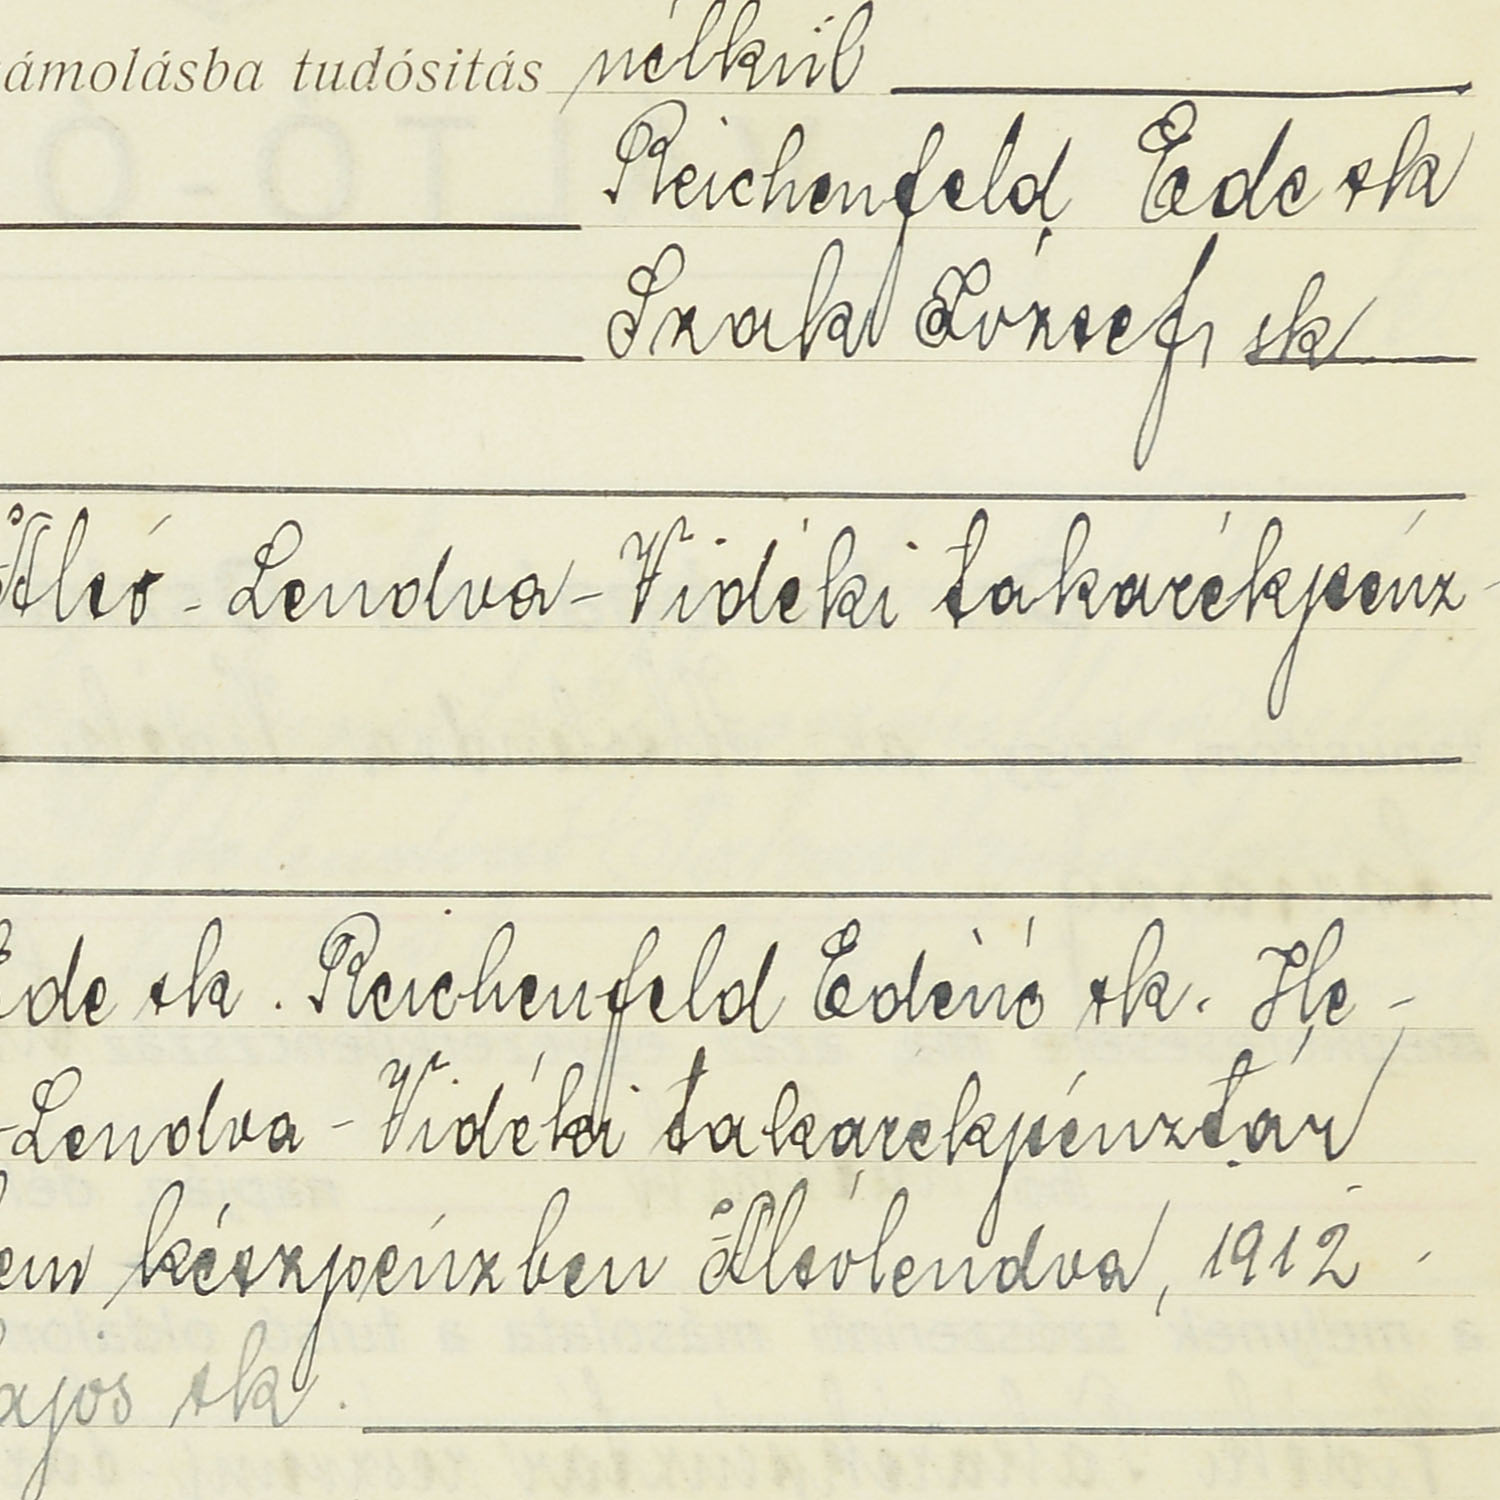 ámolásba tudósitás nélkül
Reichenfeld Ede sk
Szak József sk
Alsó-Lendva-Vidéki takarékpénz-
Ede sk. Reichenfeld Edéné sk. He-
-Lendva-Vidéki takarékpénztár
em készpénzben Alsólendva, 1912
ajos sk.